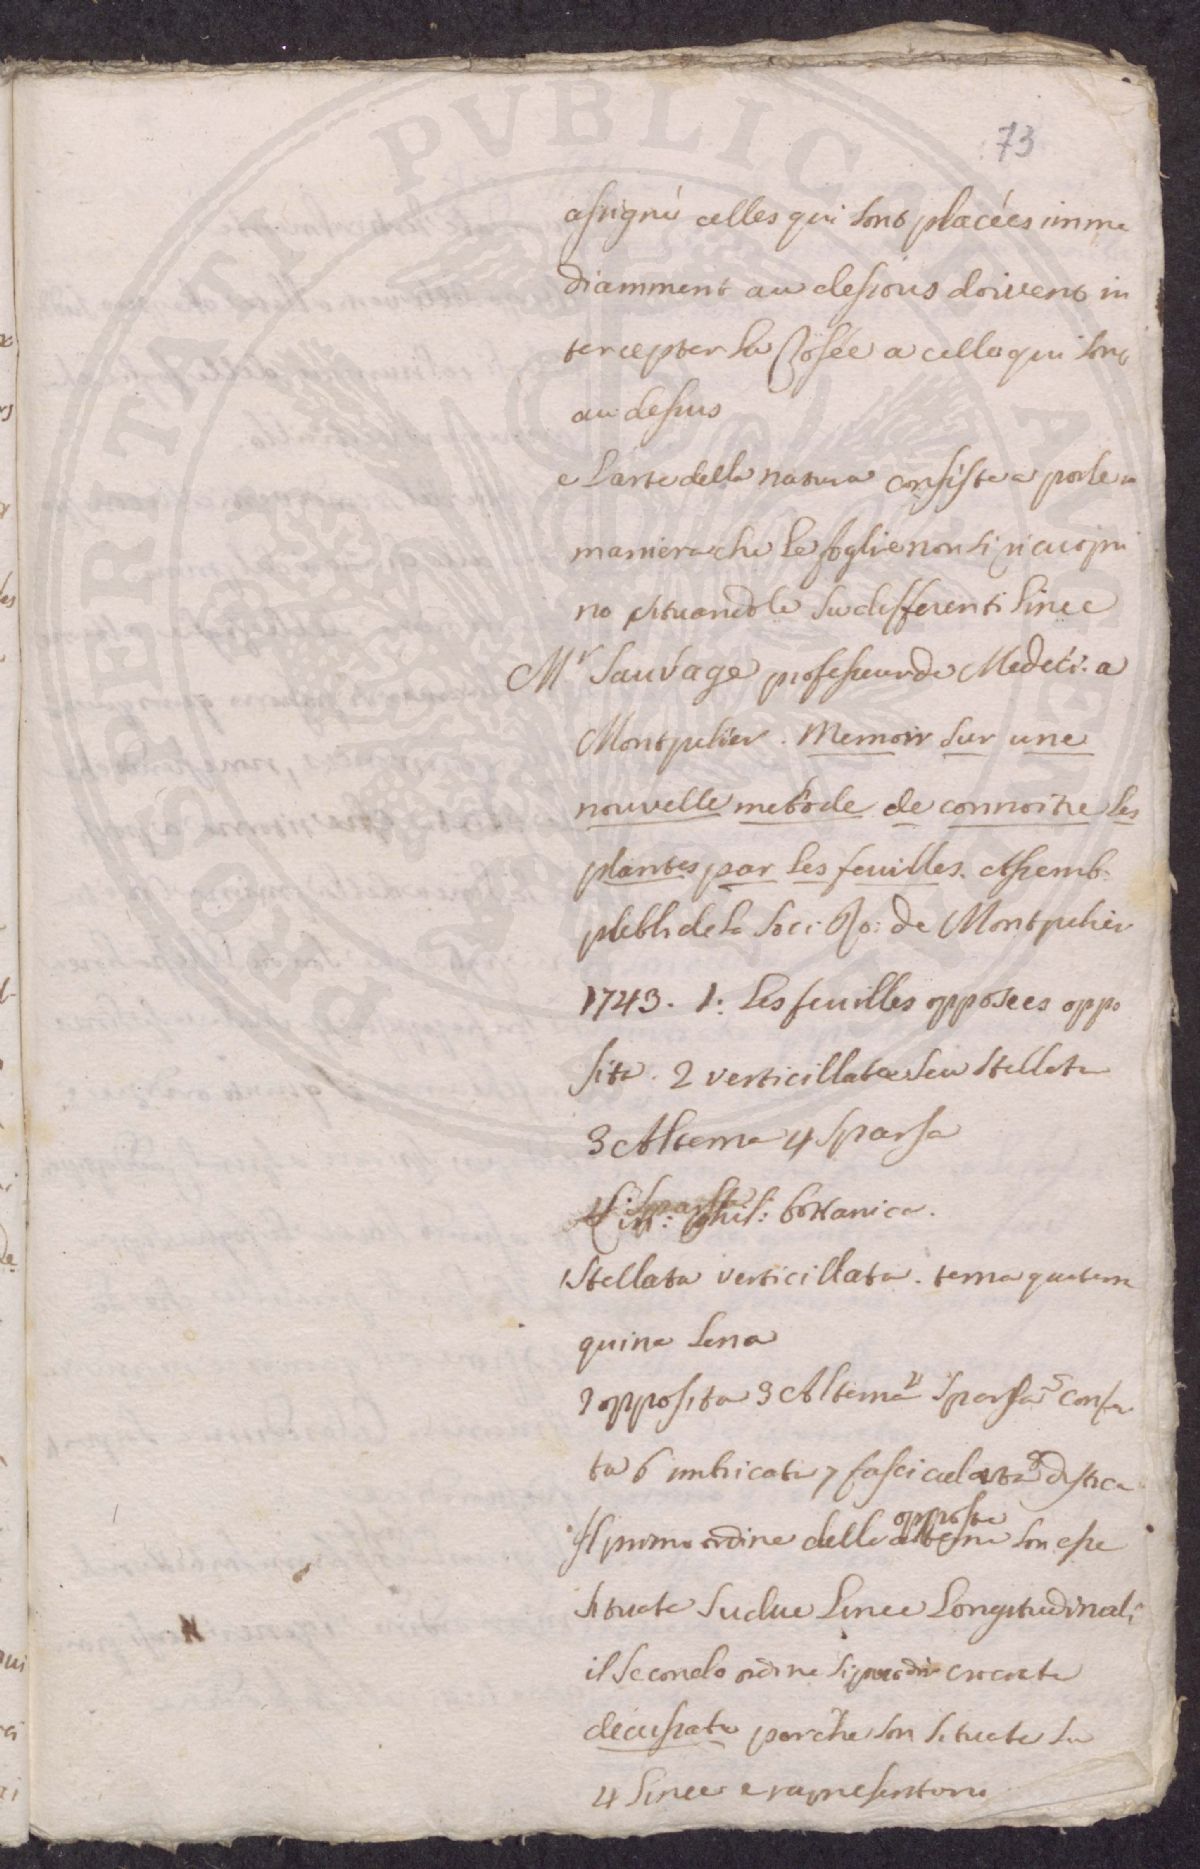 73
assigné celles qui sont placées imme
diamment au dessous doivent in
tercepter la Rosée a celle qui sont
au dessus
e L'arte della natura consiste a porle in
maniera che le foglie non si ricuopri
no situandole su differenti linee
Mr Sauvage professeur de Medeci. a
Montpelier. Memoir sur une
nouvelle metode de connoitre les
plantes par les feuilles. Assemb.
publi de la Soci: Ro: de Montpelier
1743. 1: Les feuilles opposees oppo
sita. 2 verticillata seu stellata
3 Alterna 4 Sparsa
Lin: phil: bottanica.
1 Stellata verticillata. terna quaterna
quina sena
2 opposita 3 Alterna 4 Sparsa 5 confer
ta 6 imbricata 7 fasciculata 8 distica
opposte
Il primo ordine delle alterne son esse
situate su due linee Longitudinali
il secondo ordine si può dir crociate
decussata perche son situate su
4 linee e rapresentono